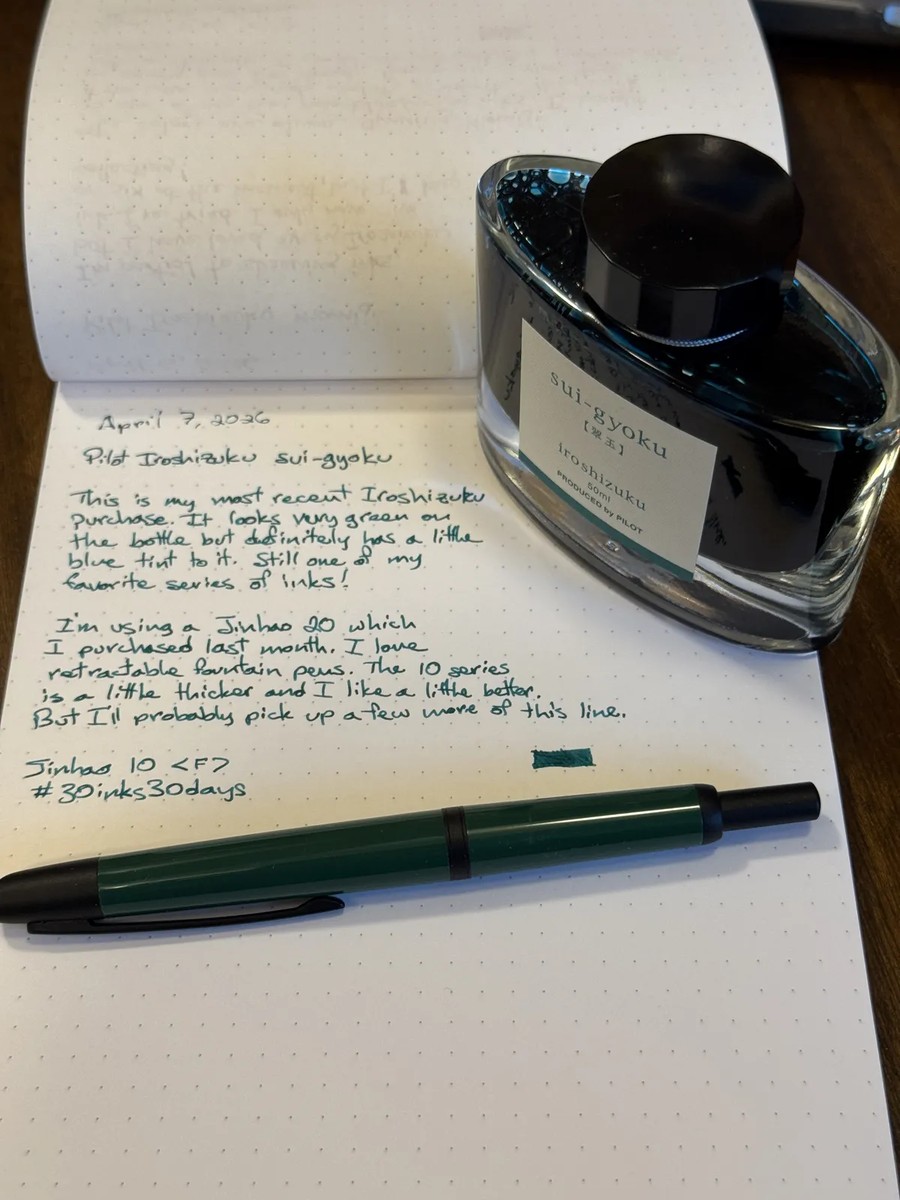 April 7, 2026
Pilot Iroshizuku sui-gyoku
This is my most recent Iroshizuku
purchase. It looks very green on
the bottle but definitely has a little
blue tint to it. Still one of my
favorite series of inks!
I'm using a Jinhao 20 which
I purchased last month. I love
retractable fountain pens. The 10 series
is a little thicker and I like a little better.
But I'll probably pick up a few more of this line.
Jinhao 10 <F>
#30inks30days
sui-gyoku
【翠玉】
iroshizuku
50ml
PRODUCED by PILOT